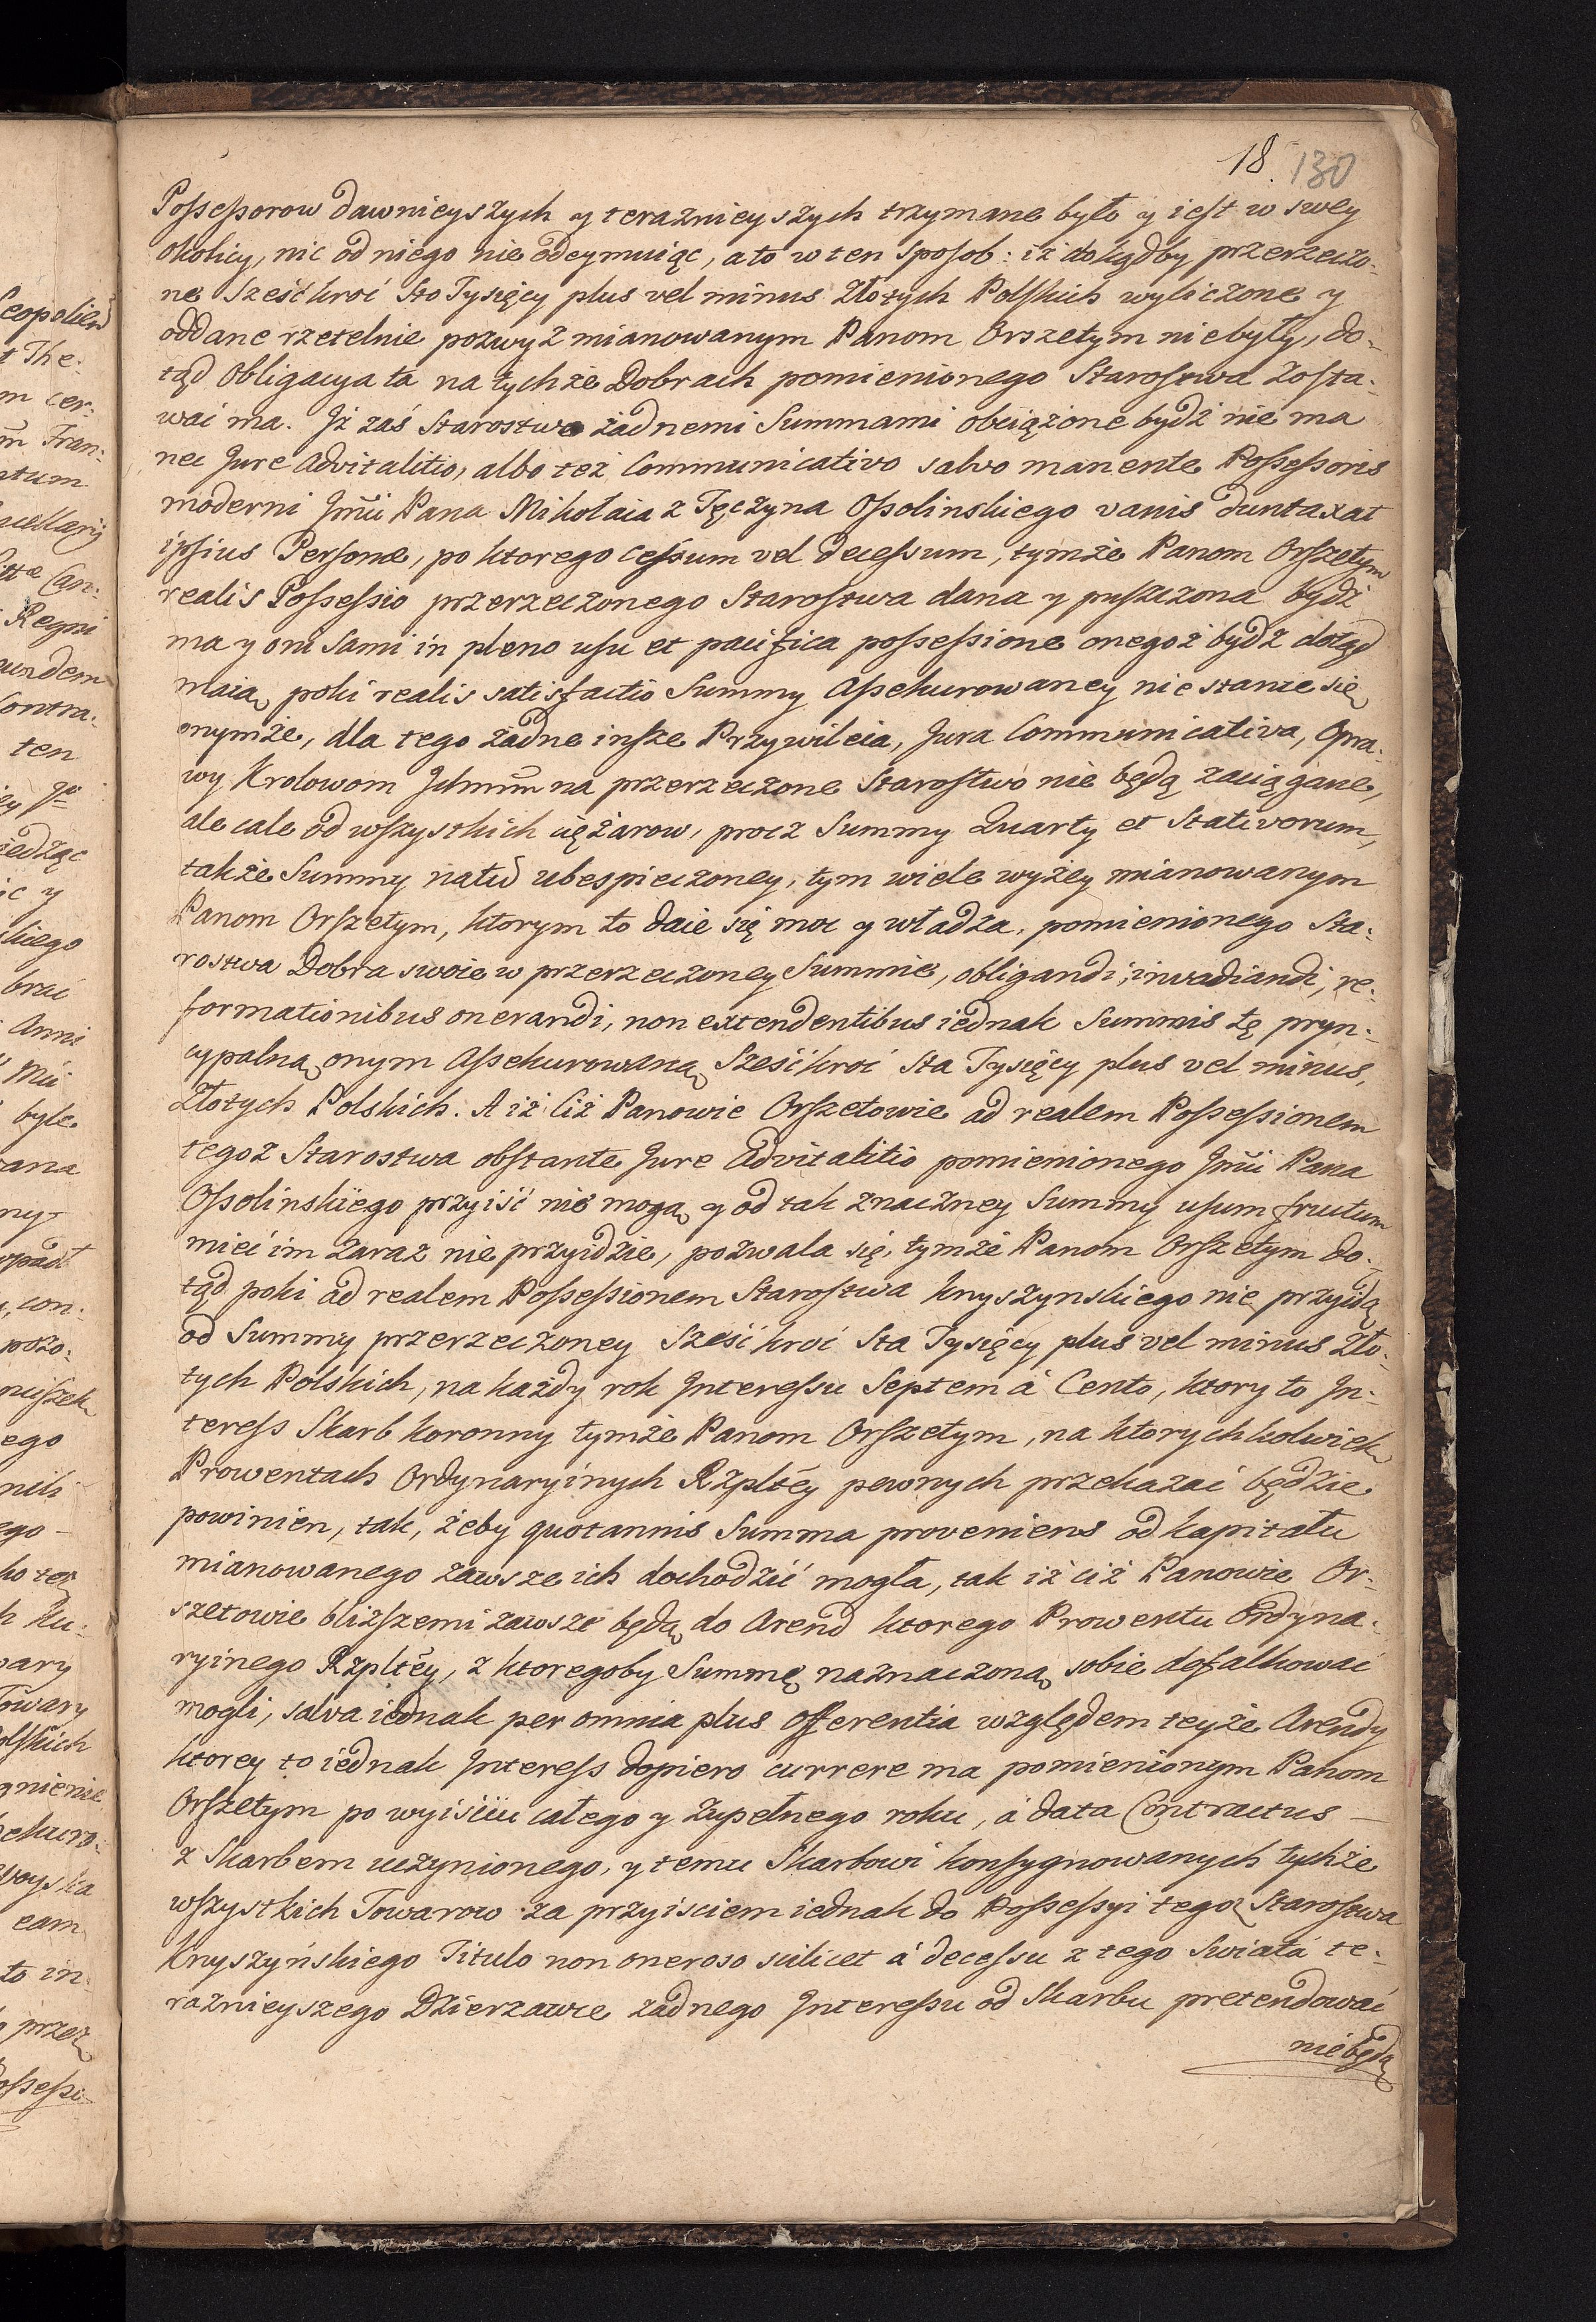 18. 130
Possessorow dawnieyszych y teraznieyszych trzymane było y iest w swey
okolicy, nic od niego nie odeymuiąc, a to w ten sposob: iż dokądby przerzeczo-
ne Sześćkroć Sto Tysięcy plus vel minus Złotych Polskich wyliczone y
oddane rzetelnie pozwyż mianowanym Panom Orszetym niebyły, do-
tąd Obligacya ta na tychże Dobrach pomienionego Starostwa Zosta-
wać ma. Iż zaś Starostwo żadnemi Summami obciążone bydź nie ma
nec Jure Advitalitio, albo też Communicativo salvo manente Possessoris
moderni Jmći Pana Mikołaia z Tęczyna Ossolinskiego vanis duntaxat
ipsius Personæ, po ktorego cessum vel decessum, tymże Panom Orszetym
realis Possessio przerzeczonego Starostwa dana y puszczona bydź
ma y oni sami in pleno usu et pacifica possessione onegoż bydź dotąd
maią, poki realis satisfactio Summy Assekurowaney nie stanie się
onymże, dla tego żadne insze Przywileia, Jura Communicativa, Opra-
wy Krolowom Ichmm na przerzeczone Starostwo nie będą zaciągane,
ale cale od wszystkich ciężarow, procz Summy Quarty et Stativorum,
także Summy natid ubespieczoney, tym wiele wyżey mianowanym
Panom Orszetym, ktorym to daie się moc y władza, pomienionego Sta-
rostwa Dobra swoie w przerzeczoney Summie, obligandi, invadiandi, re-
formationibus onerandi, non extendentibus iednak Summis tę pryn-
cypalną onym Assekurowaną Sześćkroć Sta Tysięcy plus vel minus,
Złotych Polskich. A iż Ciż Panowie Orszetowie ad realem Possessionem
tegoż Starostwa obstante Jure Advitalitio pomienionego Jmći Pana
Ossolinskiego przyiść nie mogą y od tak znaczney Summy usum fructum
mieć im zaraz nie przyidzie, pozwala się, tymże Panom Orszetym do-
tąd poki ad realem Possessionem Starostwa Knyszynskiego nie przyidą
od Summy przerzeczoney Sześć kroć Sta Tysięcy plus vel minus Zło-
tych Polskich, na każdy rok Interessu Septem á Cento, ktory to In-
teress Skarb koronny tymże Panom Orszetym, na ktorychkolwiek
Prowentach Ordynaryinych Rzpltey pewnych przekazać będzie
powinien, tak, żeby quotannis Summa proveniens od kapitału
mianowanego zawsze ich dochodzić mogła, tak iż ciż Panowie Or-
szetowie bliższemi zawsze będą do Arend ktorego Prowentu Ordyna-
ryinego Rzpltey, z ktoregoby Summę naznaczoną sobie defalkować
mogli, salva iednak per omnia plus offerentia względem teyże Arendy
ktorey to iednak Interess dopiero currere ma pomienionym Panom
Orszetym po wyiściu całego y zupełnego roku, á data Contractus —
z Skarbem uczynionego, y temu Skarbowi konsygnowanych tychże
wszystkich Towarow za przyisciem iednak do Possessyi tegoż Starostwa
Knyszyńskiego Titulo non oneroso scilicet á decessu z tego Swiata te-
raznieyszego Dzierzawce zadnego Interessu od Skarbu pretendować
niebędą